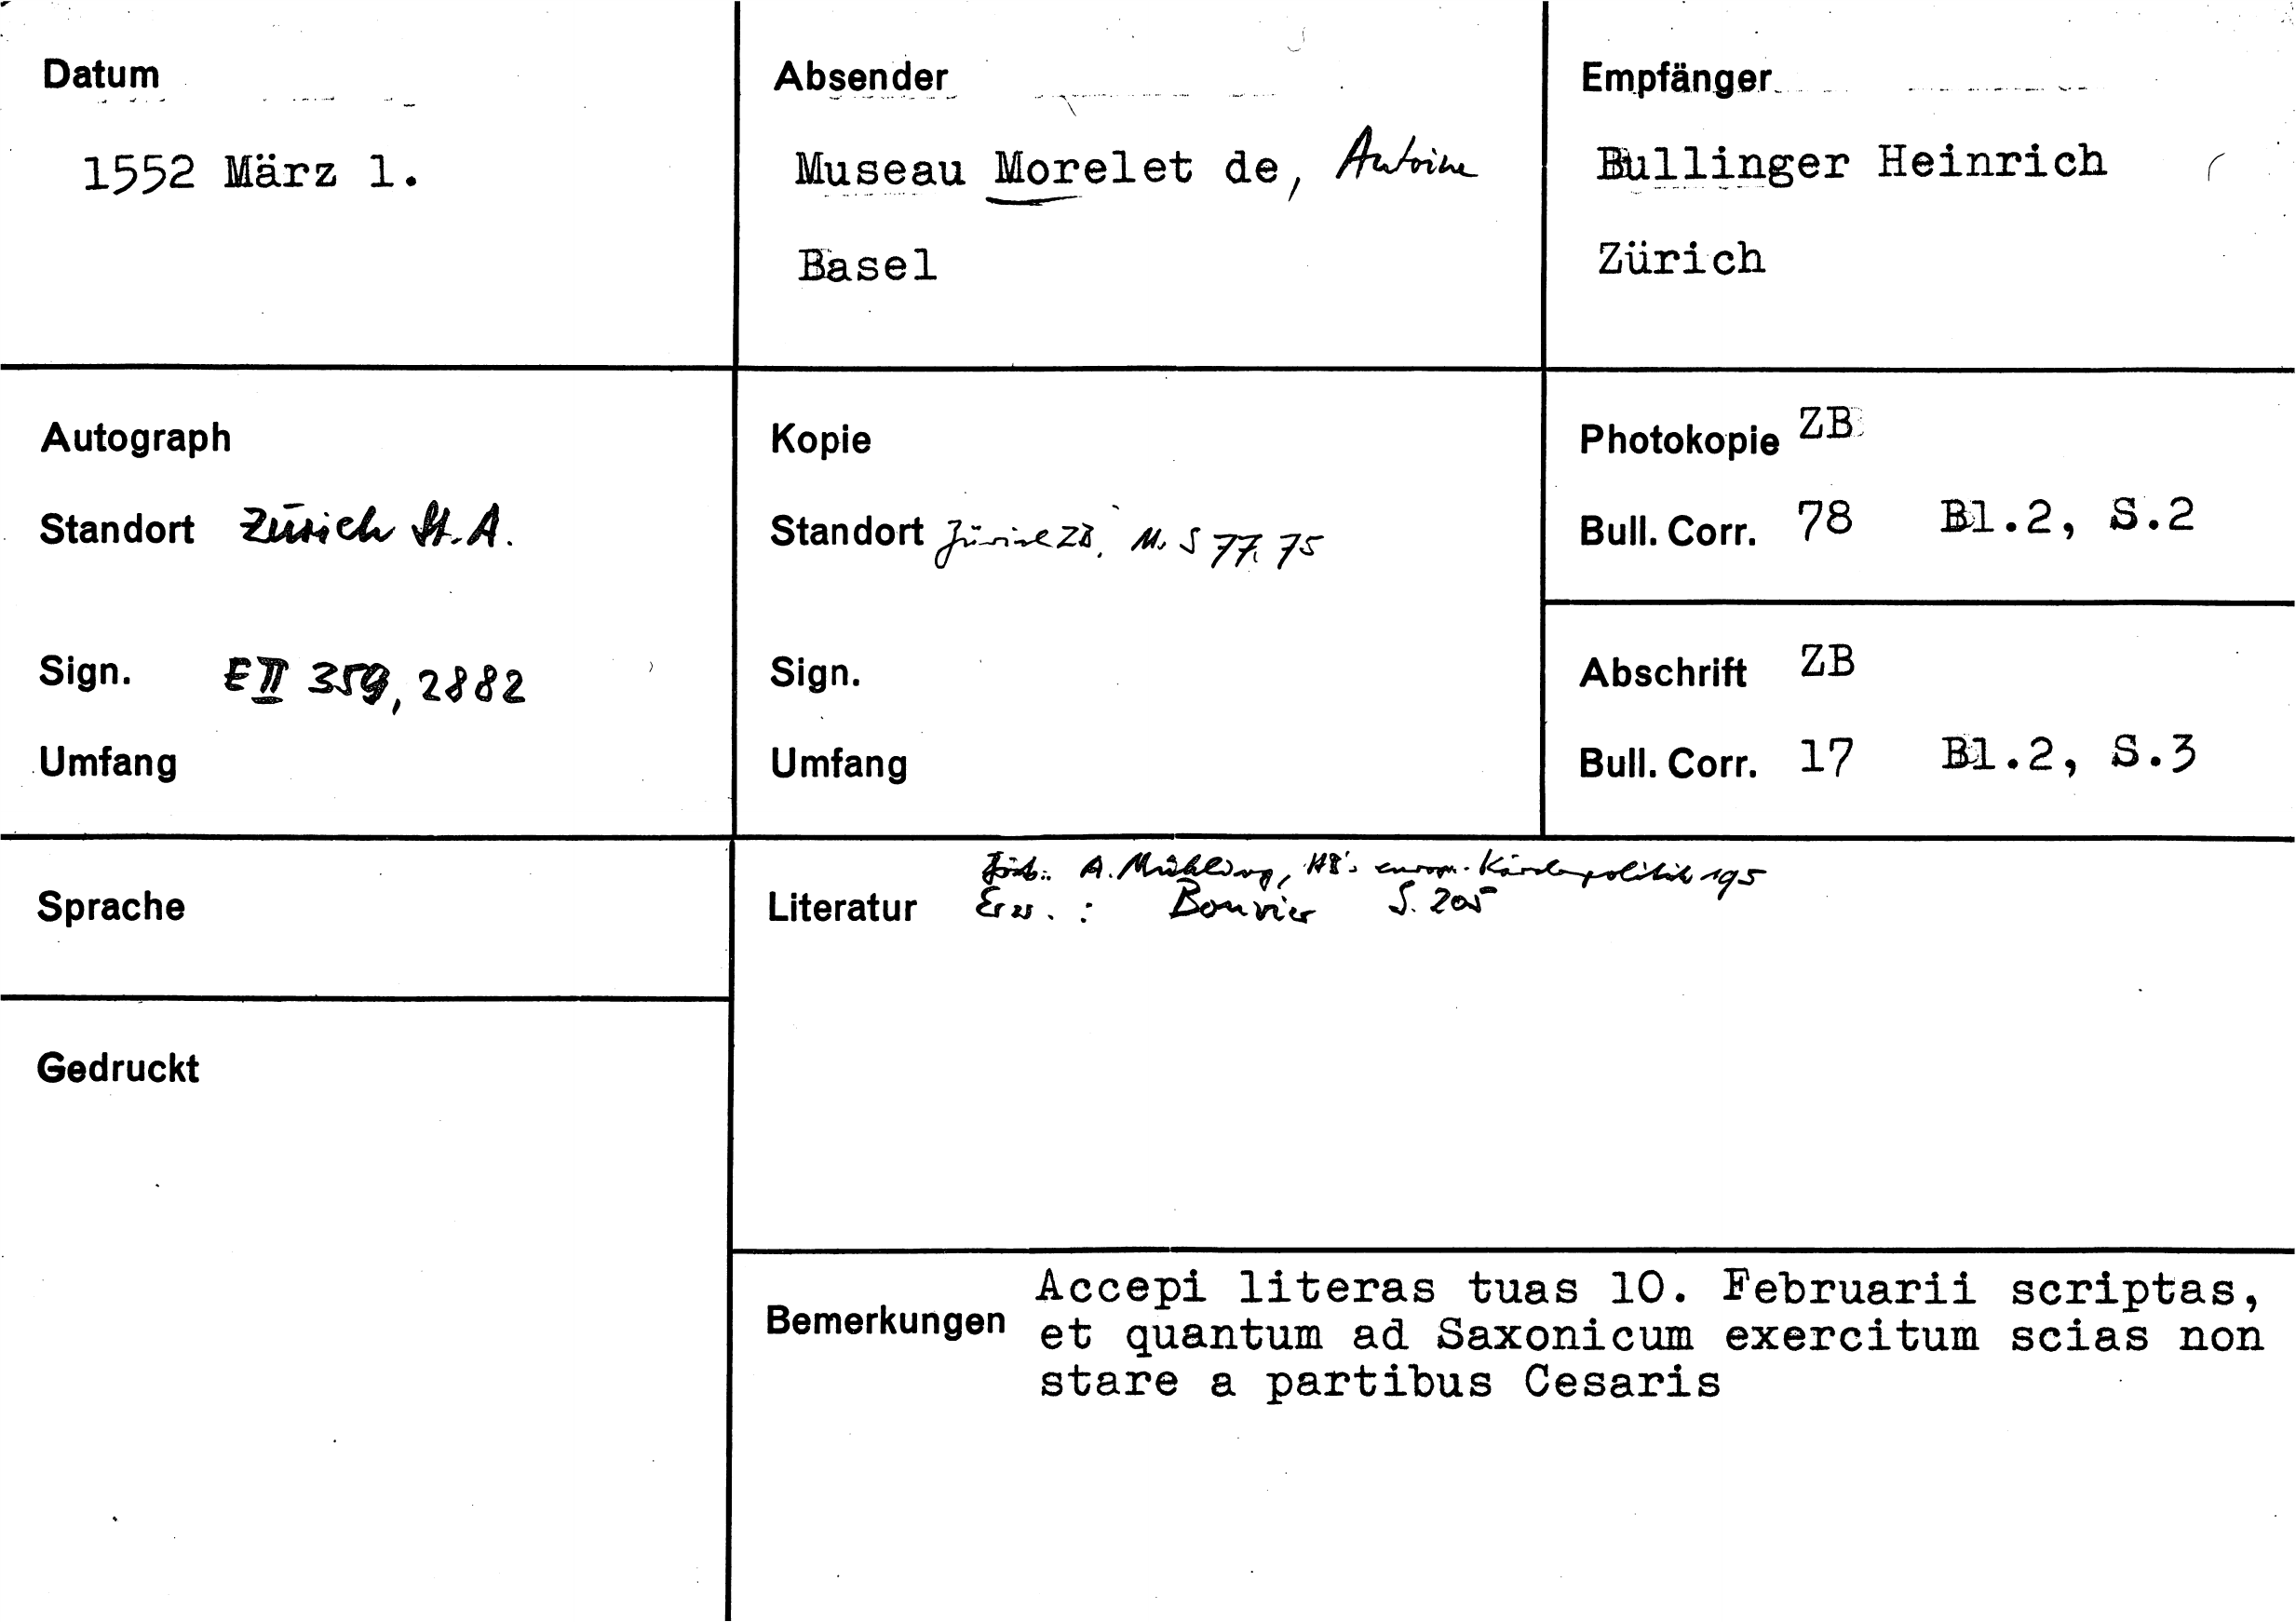 Datum
1552 März 1.
Absender
Museau Morelet de, Antoine
Basel
Empfänger
Bullinger Heinrich
Zürich
Autograph
Standort Zürich St.A.
Sign. EII 359, 2882
Umfang
Kopie
Standort Zürich ZB, Ms S 77, 75
Sign.
Umfang
Photokopie ZB
Bull. Corr. 78 Bl.2, S.2
Abschrift ZB
Bull. Corr. 17 Bl.2, S.3
Sprache
Gedruckt
A. Mühling, HB's europ. Kirchenpolitik 195
Literatur Erw.: Bouvier S. 205
Bemerkungen
Accepi literas tuas 10. Februarii scriptas,
et quantum ad Saxonicum exercitum scias non
stare a partibus Cesaris